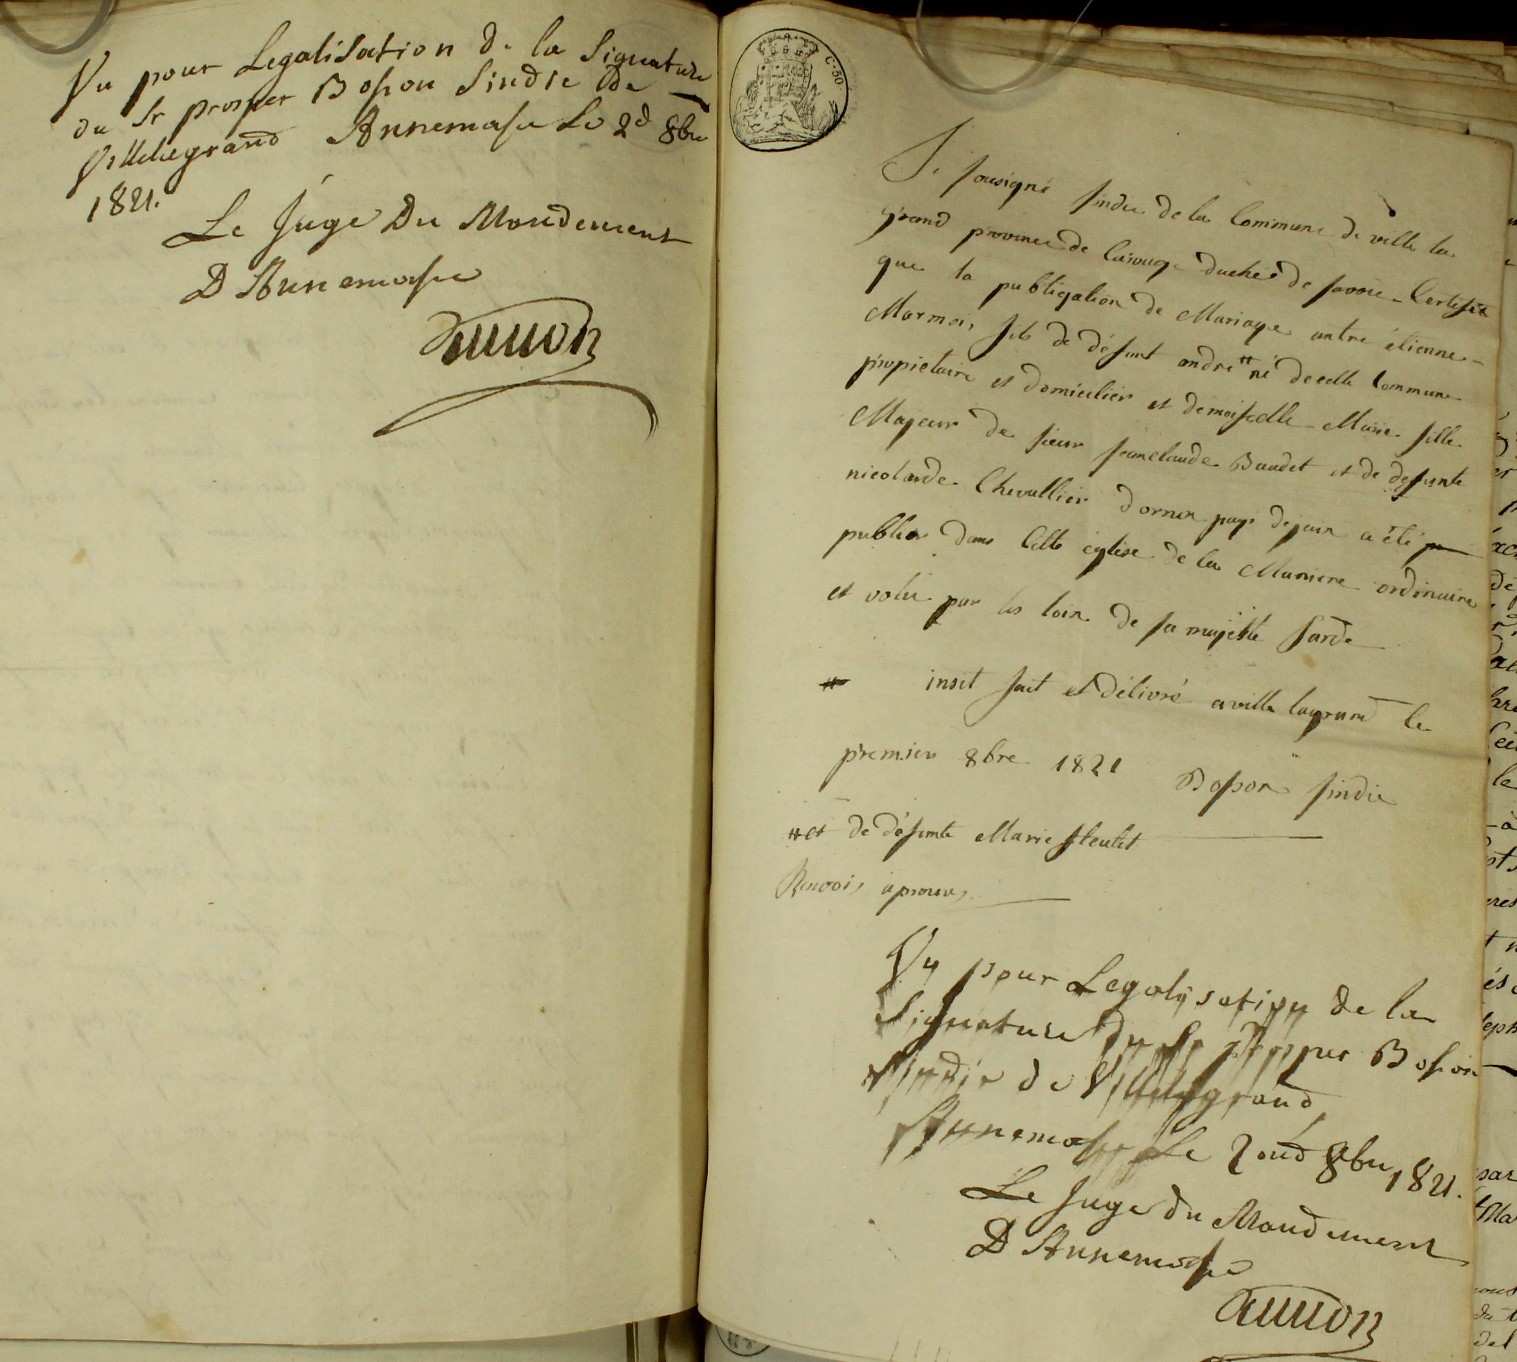 Vu pour Legalisation de la Signature
du Sr prosper Boson Sindic De
Villelagrand Annemasse Le 2d 8bre
1821.
Le Juge Du Mandement
D'Annemasse
C. 50
Je sousigné sindic de la Commune de ville la
grand province de Carouge duché de savoie Certifie
que la publiqation de Mariage antre étienne
Marmois fils de défunt andré # né de cette Commune
propietaire et domicilier et demoiselle Marie fille
Majeur de sieur jeanclaude Baudet et de defunte
nicolarde Chevallier d'ornex pays de jex a été
publier dans cette église de la Maniere ordinaire
et volu par les loix de sa majésté Sarde
# insit fait et délivré a ville lagrand le
premier 8bre 1821 Boson sindic
# et de défunte Marie
Renvois aprouvé
Vu pour Legalisation de la
Signature du Sr Prosper Boson
Sindic de Villelagrand
Annemasse Le 2ond 8bre 1821.
Le Juge du Mandement
D'Annemasse